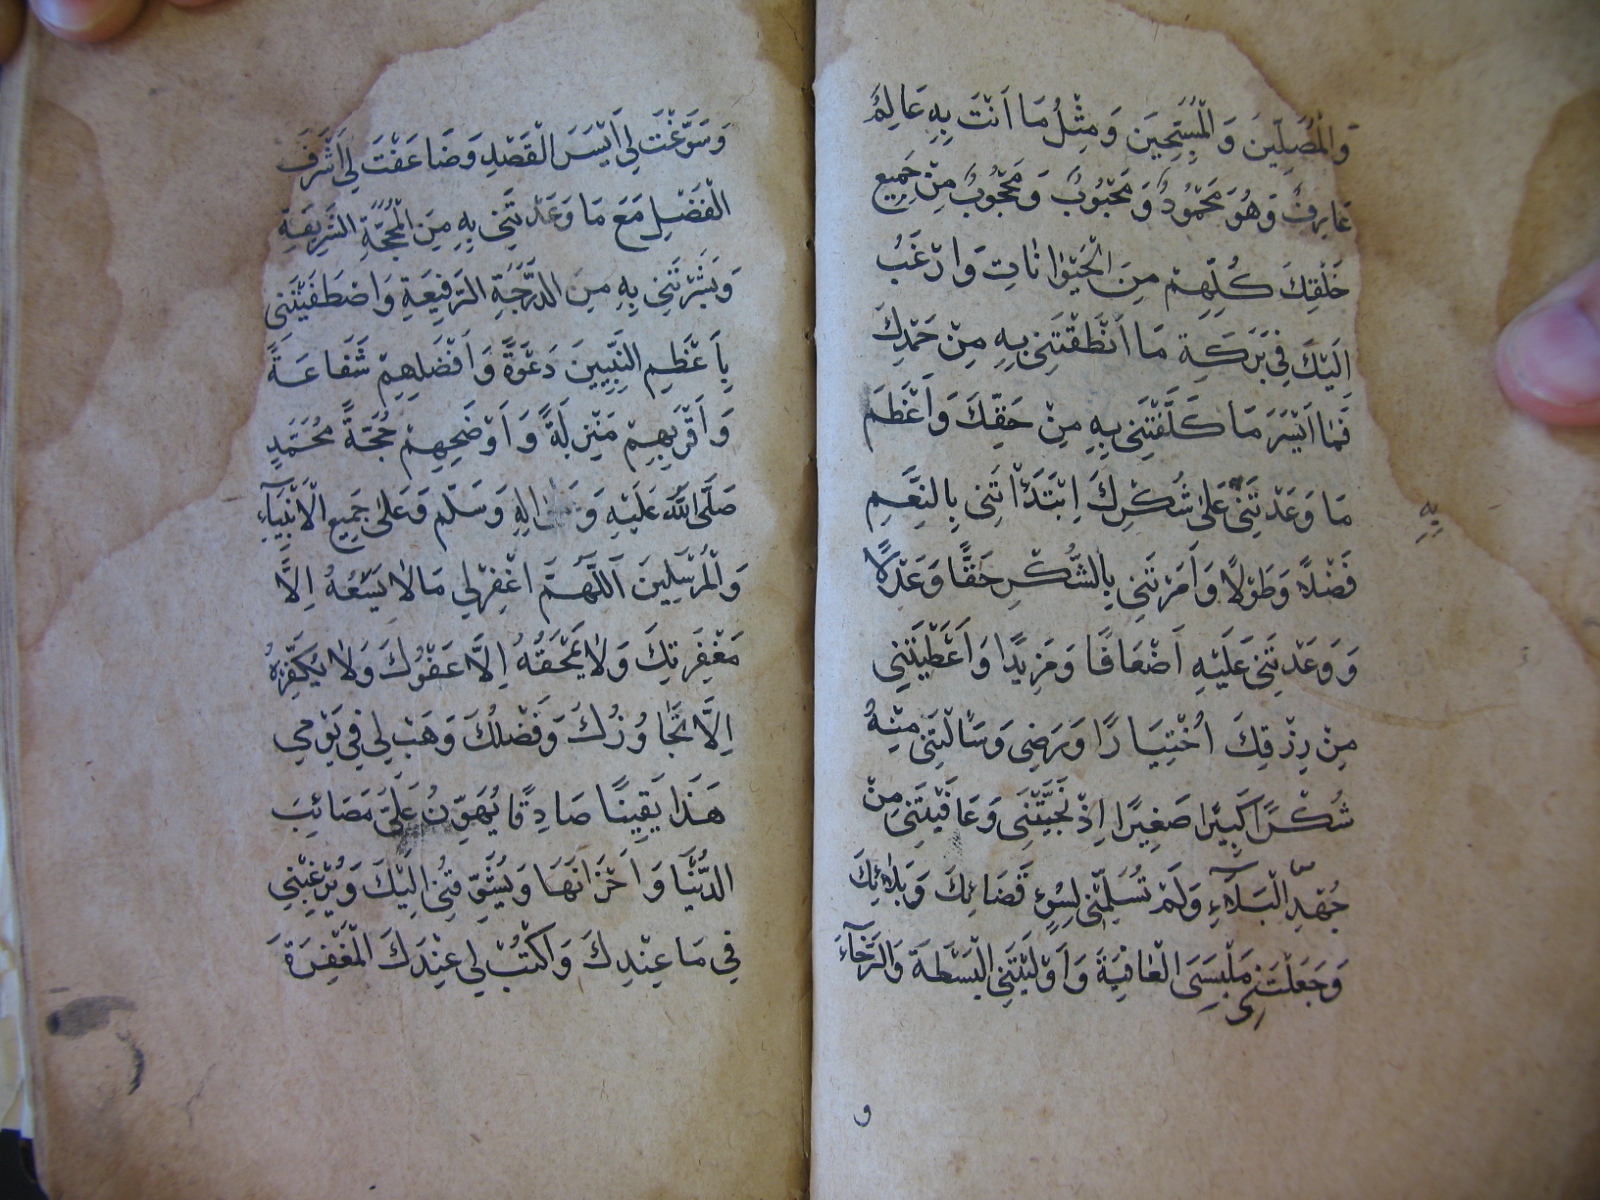 وَالْمُصَلِّينَ وَالْمُسَبِّحِينَ وَمِثْلُ مَا اَنْتَ بِهِ عَالِمٌ
عَارِفٌ وَهُوَ مَحْمُودٌ وَمَحْبُوبٌ وَمَحْجُوبٌ مِنْ جَمِيعِ
خَلْقِكَ كُلِّهِمْ مِنَ الْحَيْوٰانَاتِ وَارْغَبُ
اِلَيْكَ فِي بَرَكَةِ مَا اَنْطَقْتَنِي بِهِ مِنْ حَمْدِكَ
فَمَا اَيْسَرَ مَا كَلَّفْتَنِي بِهِ مِنْ حَقِّكَ وَاَعْظَمَ
مَا وَعَدْتَنِي عَلىٰ شُكْرِكَ اِبْتَدَأْتَنِي بِالنِّعَمِ
بِهِ
فَضْلاً وَطَوْلاً وَاَمَرْتَنِي بِالشُّكْرِ حَقًّا وَعَدْلاً
وَوَعَدْتَنِي عَلَيْهِ اَضْعَافًا وَمَزِيدًا وَاَعْطَيْتَنِي
مِنْ رِزْقِكَ اُخْتِيَارًا وَرَضِى وَسَاَلْتَنِي مِنْهُ
شُكْرًا كَبِيرًا صَغِيرًا اِذْ نَجَّيْتَنِي وَعَافَيْتَنِي مِنْ
جُهْدِ الْبَلَآءِ وَلَمْ تُسَلِّمْنِي لِسُوْءِ قَضَائِكَ وَبَلَائِكَ
وَجَعَلْتَنِي مَلْبَسِيَ الْعَافِيَةَ وَاَوْلَيْتَنِي الْبَسْطَةَ وَالرَّخَآءَ
و
وَسَوَّغْتَ لِي اَيْسَرَ الْقَصْدِ وَضَاعَفْتَ لِي اَشْرَفَ
الْفَضْلِ مَعَ مَا وَعَدْتَنِي بِهِ مِنَ الْمُحَجَّةِ الشَّرِيفَةِ
وَبَشَّرْتَنِي بِهِ مِنَ الدَّرَجَةِ الرَّفِيعَةِ وَاصْطَفَيْتَنِي
بِاَعْظَمِ النَّبِيِّينَ دَعْوَةً وَاَفْضَلِهِمْ شَفَاعَةً
وَاَقْرَبِهِمْ مَنْزِلَةً وَاَوْضَحِهِمْ حُجَّةً مُحَمَّدٍ
صَلَّى اللّٰهُ عَلَيْهِ وَعَلىٰ اٰلِهِ وَسَلَّم وَعَلىٰ جَمِيعِ الْاَنْبِيَآءِ
وَالْمُرْسَلِينَ اَللّٰهُمَّ اغْفِرْلِي مَا لاٰ يَسَعُهُ اِلَّا
مَغْفِرَتُكَ وَلاٰ يَمْحَقُهُ اِلَّا عَفْوُكَ وَلاٰ يُكَفِّرُهُ
اِلَّا تَجَاوُزُكَ وَفَضْلُكَ وَهَبْ لِي فِي يَوْمِي
هَذَا يَقِينًا صَادِقًا يُهَوِّنُ عَلَيَّ مَصَائِبَ
الدُّنْيَا وَاَحْزَانَهَا وَيُشَوِّقُنِي اِلَيْكَ وَيُرْغِبُنِي
فِي مَا عِنْدِكَ وَاكْتُبْ لِي عِنْدَكَ الْمَغْفِرَةَ